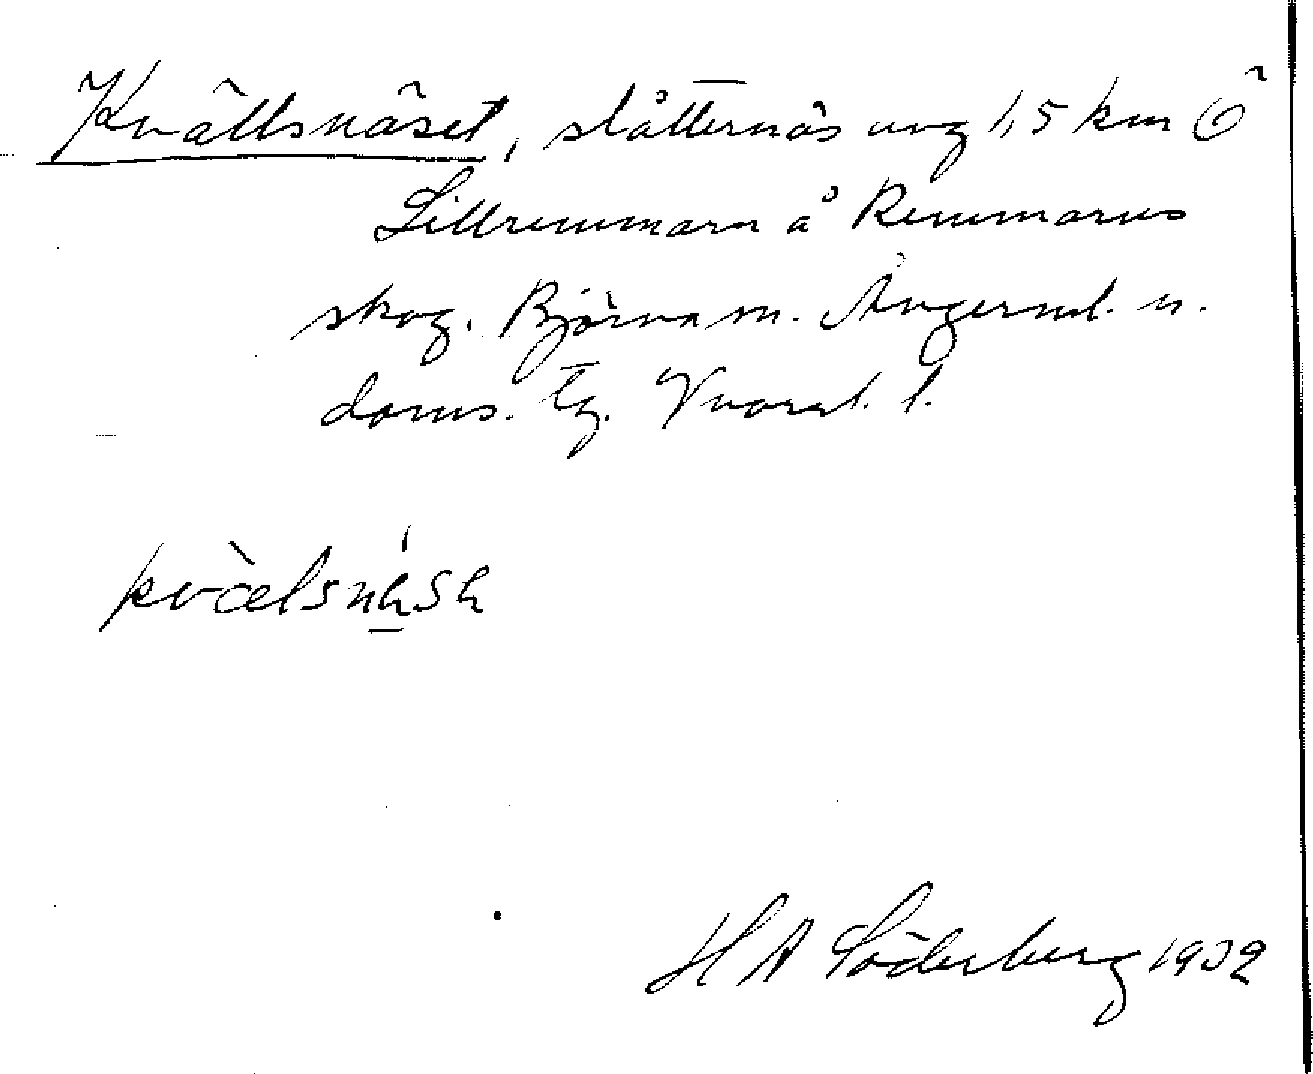 Kvällsnäset, slåtternäs ung 1,5 km Ö
Lillremmarn å Remmarns
skog. Björna sn. Ångerml. n.
doms. tg. Vnorrl. l.
kvæ̀lsnése
H A Söderberg 1932